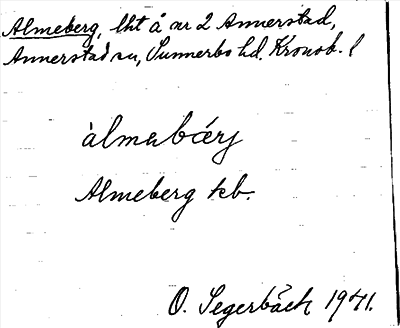 Almeberg, lht å nr 2 Annerstad,
Annerstad sn, Sunnerbo hd. Kronob. l
àlmabærj
Almeberg kb.
O. Segerbäck 1941.